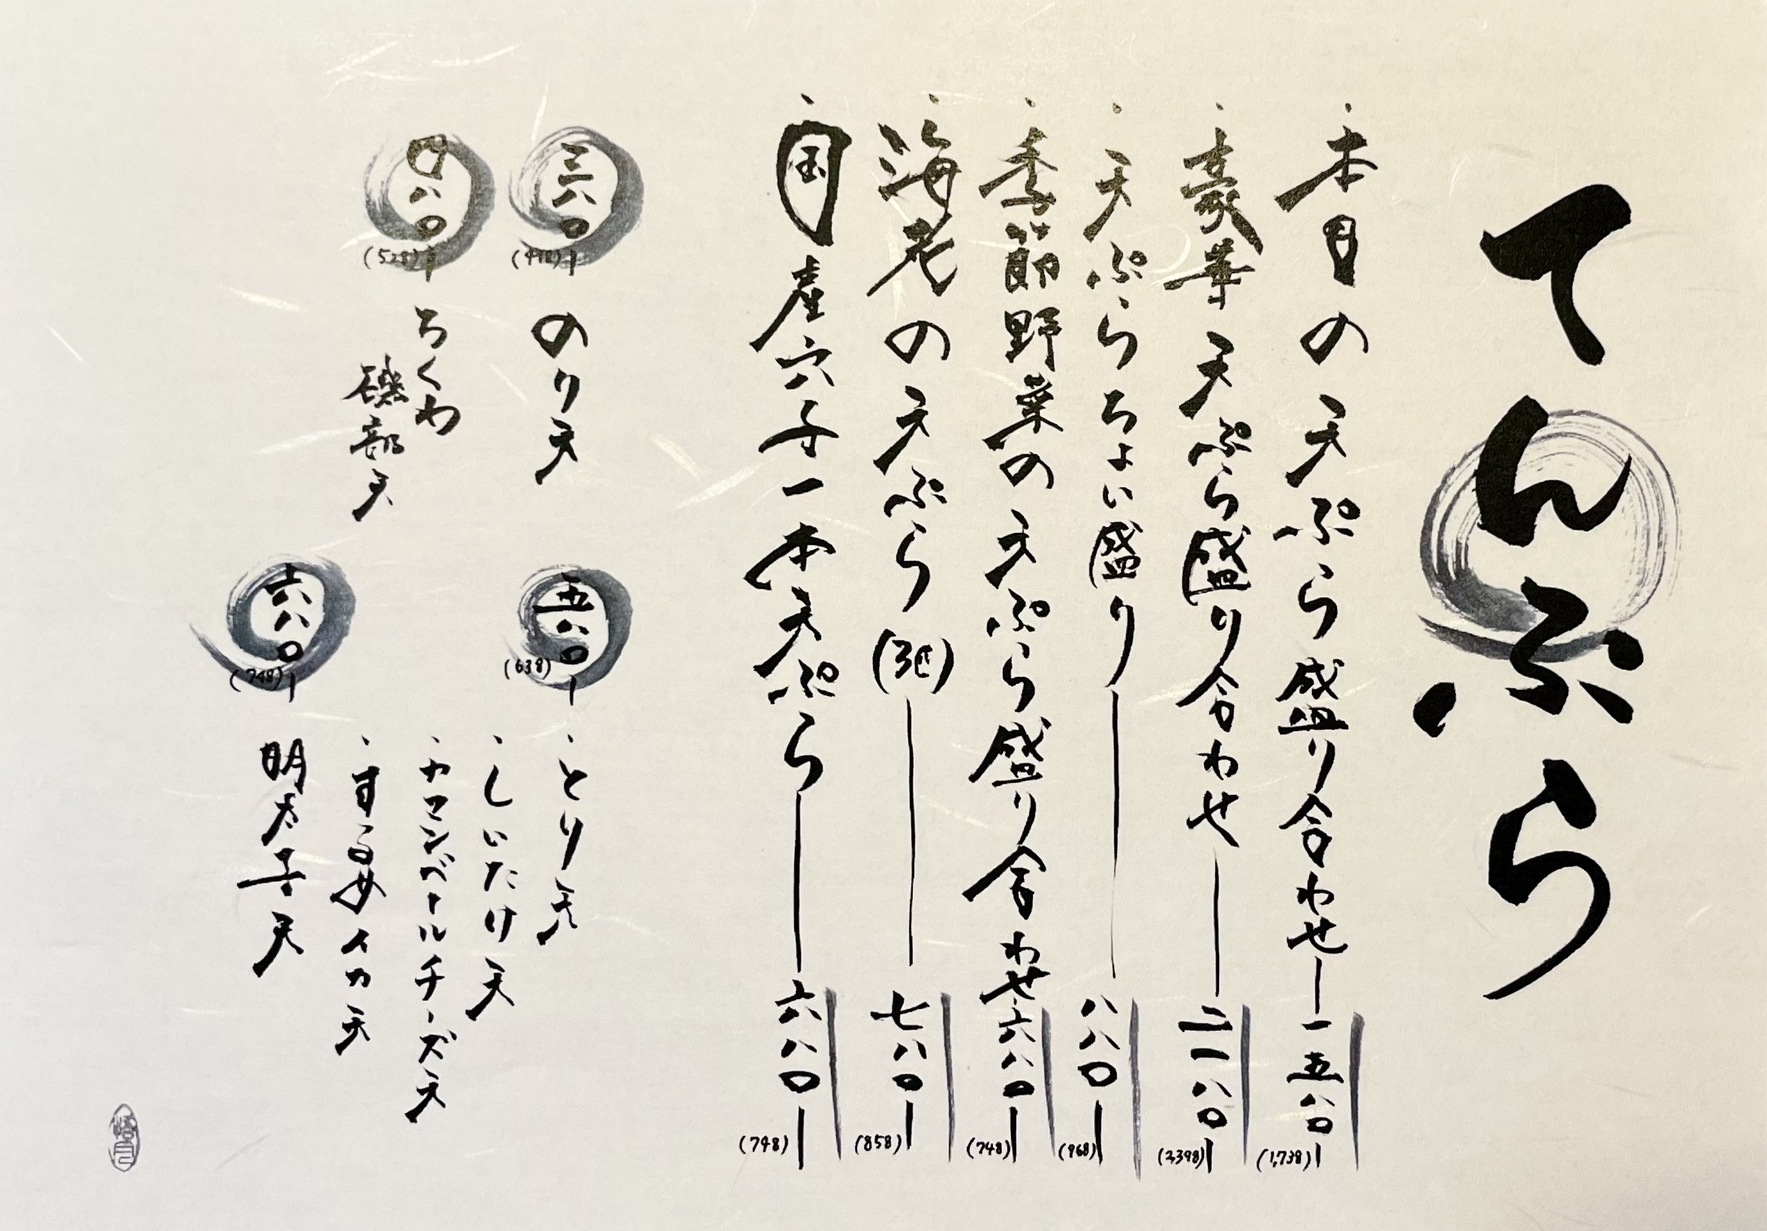 てんぷら
・本日の天ぷら盛り合わせ―一五八〇― (1,738)
・豪華天ぷら盛り合わせ―二一八〇― (2,398)
・天ぷらちょい盛り―八八〇― (968)
・季節野菜の天ぷら盛り合わせ六八〇― (748)
・海老の天ぷら(3匹)―七八〇― (858)
・国産穴子一本天ぷら―六八〇― (748)
三八〇― (418)
のり天
四八〇― (528)
ちくわ
磯部天
五八〇― (638)
・とり天
・しいたけ天
・カマンベールチーズ天
・するめイカ天
六八〇― (748)
明太子天